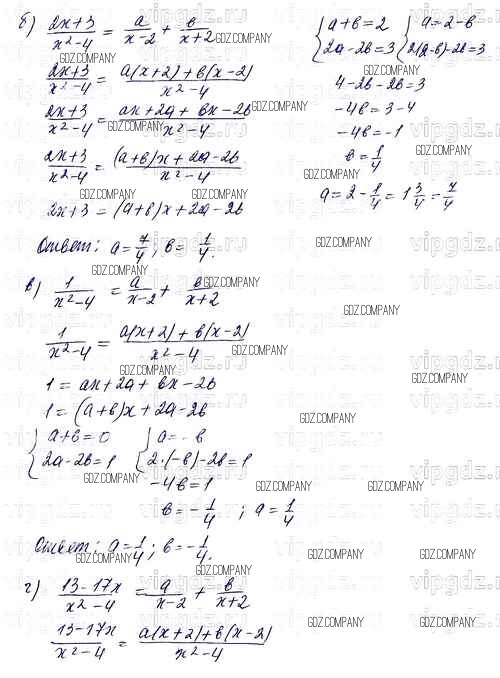 б) (2x+3)/(x²-4) = a/(x-2) + в/(x+2)
(2x+3)/(x²-4) = (a(x+2)+в(x-2))/(x²-4)
(2x+3)/(x²-4) = (ax+2a+вx-2в)/(x²-4)
(2x+3)/(x²-4) = ((a+в)x+2a-2в)/(x²-4)
2x+3=(a+в)x+2a-2в
{a+в=2 {a=2-в
2a-2в=3 2(2-в)-2в=3
4-2в-2в=3
-4в=3-4
-4в=-1
в=1/4
a=2-1/4=1 3/4=7/4
Ответ: a=7/4, в=1/4.
в) 1/(x²-4) = a/(x-2) + в/(x+2)
1/(x²-4) = (a(x+2)+в(x-2))/(x²-4)
1=ax+2a+вx-2в
1=(a+в)x+2a-2в
{a+в=0 {a=-в
2a-2в=1 2·(-в)-2в=1
-4в=1
в=-1/4; a=1/4
Ответ: a=1/4; в=-1/4.
г) (13-17x)/(x²-4) = a/(x-2) + в/(x+2)
(13-17x)/(x²-4) = (a(x+2)+в(x-2))/(x²-4)
GDZ.COMPANY
vipgdz.ru